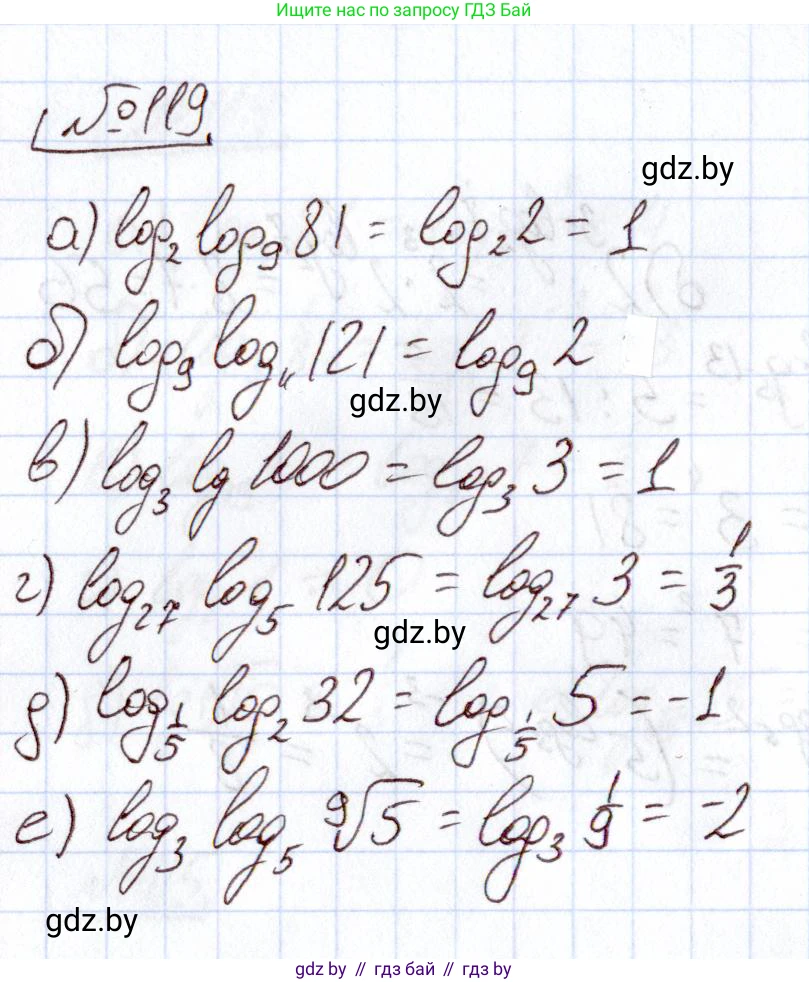 Ищите нас по запросу ГДЗ Бай
№119
gdz.by
а) log₂ log₉ 81 = log₂ 2 = 1
б) log₉ log₁₁ 121 = log₉ 2
gdz.by
в) log₃ lg 1000 = log₃ 3 = 1
г) log₂₇ log₅ 125 = log₂₇ 3 = 1/3
gdz.by
д) log_{1/5} log₂ 32 = log_{1/5} 5 = -1
е) log₃ log₅ ⁹√5 = log₃ 1/9 = -2
gdz.by
gdz by // гдз бай // гдз by